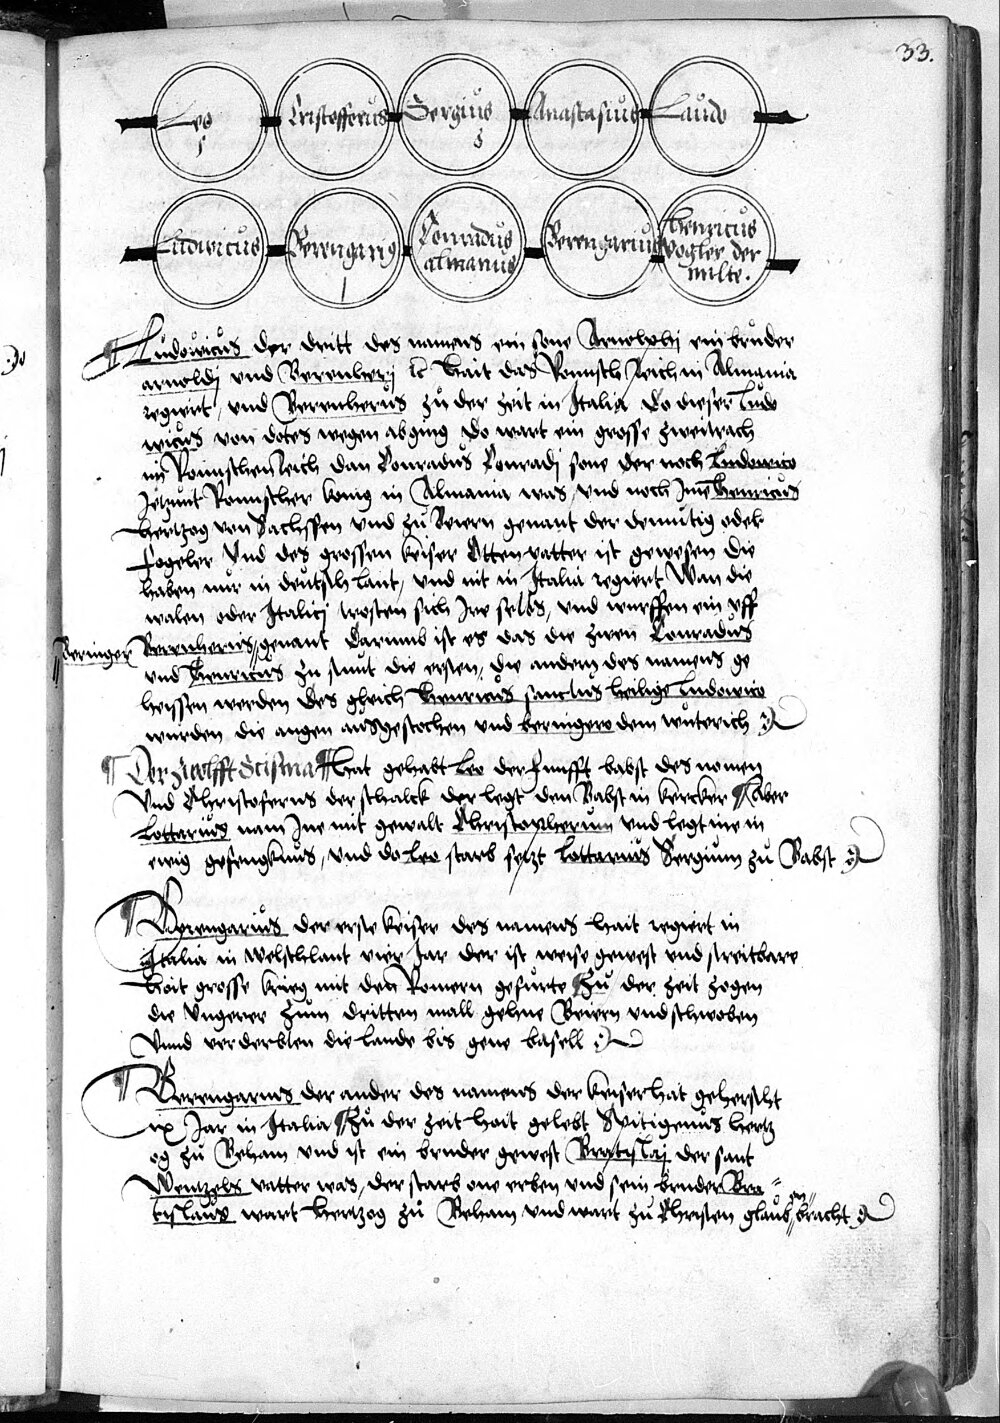 33.
Leo 5 Cristofferus Sergius 3 Anastasius Laudo
Ludwicus Berengarius 1 Conradus almanus Berengarius Henricus vogler der milte.
Ludowicus der dritt des namens ein sone Arnolphj ein bruder
arnoldj vnd Berenherij hait das Romisch Reich in Almania
regiert, vnd Berenherus zu der zeit in Italia Do dieser Ludo
wicus von dotes wegen abging Do wart ein grosse zweitrach
im Romischen Reich dan Conradus Conradj sone der noch Ludowico
Jetzunt Romischer konig in Almania was, vnd noch Jme Henricus
hertzog von Sachssen vnd zu Beiern genant der demutig oder
fogeler Vnd des grossen keiser Otten vatter ist gewesen Die
haben nur in deutsch lant, vnd nit in Italia regiert Wan die
walen oder Italicj trosten sich Jre selbs, vnd wurffen ein vff
Beringer
Berenherus, genant Darumb ist es das die zwen Conradus
vnd Henricus zu stunt die ersten, die andern des namens ge
heissen werden des glich Henricus sanctus heilige Ludowico
wurden die augen ausgestochen vnd beringero dem wuterich
Der zwolfft Scisma Hat gehabt Leo der funfft babst des nomen
Vnd Christoferus der schalck der legt den Babst in kercker Aber
Lottarius nam Jne mit gewalt Christopherum vnd legt ine in
ewig gefengknus, vnd do Leo starb setzt Lottarius Sergium zu Babst
Berengarius der erste keiser des namens hait regiert in
Italia in welschlant vier Jar der ist weise gewest vnd streitbare
hait grosse krieg mit den Romern gefurte Zu der zeit zogen
die Vngerer zum dritten mall gehne Beiern vnd schwoben
Vnnd verderbten die lande bis gene basell
Berengarius der ander des namens der keiser hat geherscht
ix Jar in Italia Zu der zeit hait gelebt Spitigenus hertz
og zu Beham vnd ist ein bruder gewest Bratislaj der sant
Wentzels vatter was, der starb one erben vnd sein bruder Bra
tislaus wart hertzog zu Beham vnd wart zu Christen glauben bracht